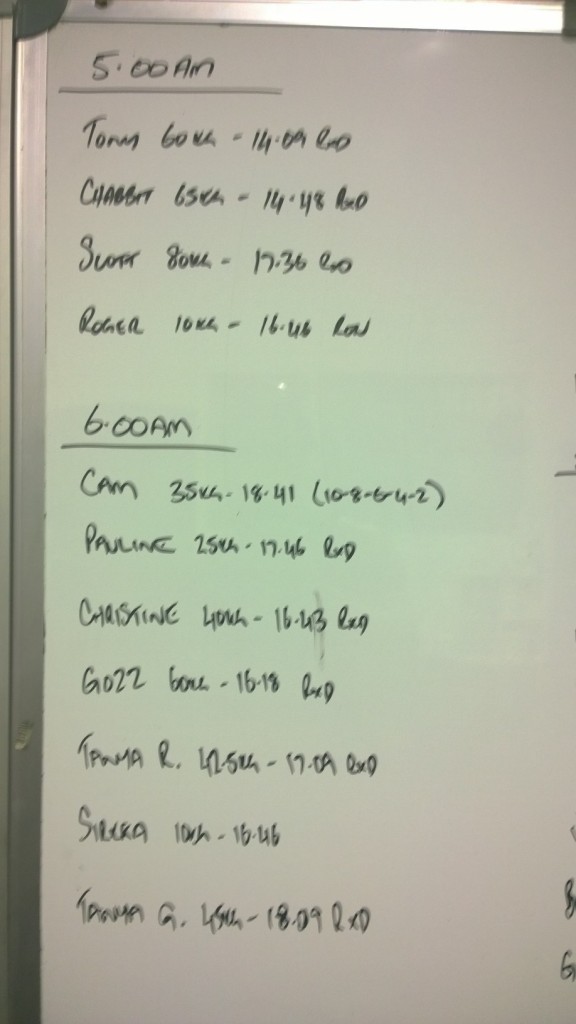 5.00AM
Tony 60KG - 14.09 RxD
CHABBIT 65KG - 14.48 RxD
SCOTT 80KG - 17.36 RxD
ROGER 10KG - 16.46 ROW
6.00AM
CAM 35KG - 18.41 (10-8-6-4-2)
PAULINE 25KG - 17.46 RxD
CHRISTINE 40KG - 16.43 RxD
GOZZ 60KG - 16.18 RxD
TANYA R. 42.5KG - 17.09 RxD
10KG - 16.46
TANYA G. 45KG - 18.09 RxD